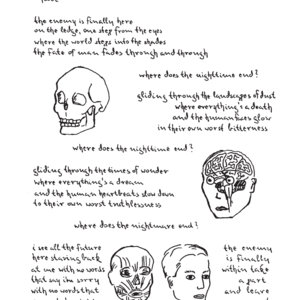 the enemy is finally here
on the ledge, one step from the eyes
where the world steps into the shades
the fate of man fades through and through
where does the nighttime end?
gliding through the landscapes of dust
where everything's a death
and the human faces glow
in their own worst bitterness
where does the nighttime end?
gliding through the times of wonder
where everythang's a dream
and the human heartbeats slow down
to their own worst truthlessness
where does the nightmare end?
i see all the future
here staring back
at me with no words
that say i'm sorry
with no words that
the enemy
is finally
within take
a part
and leave